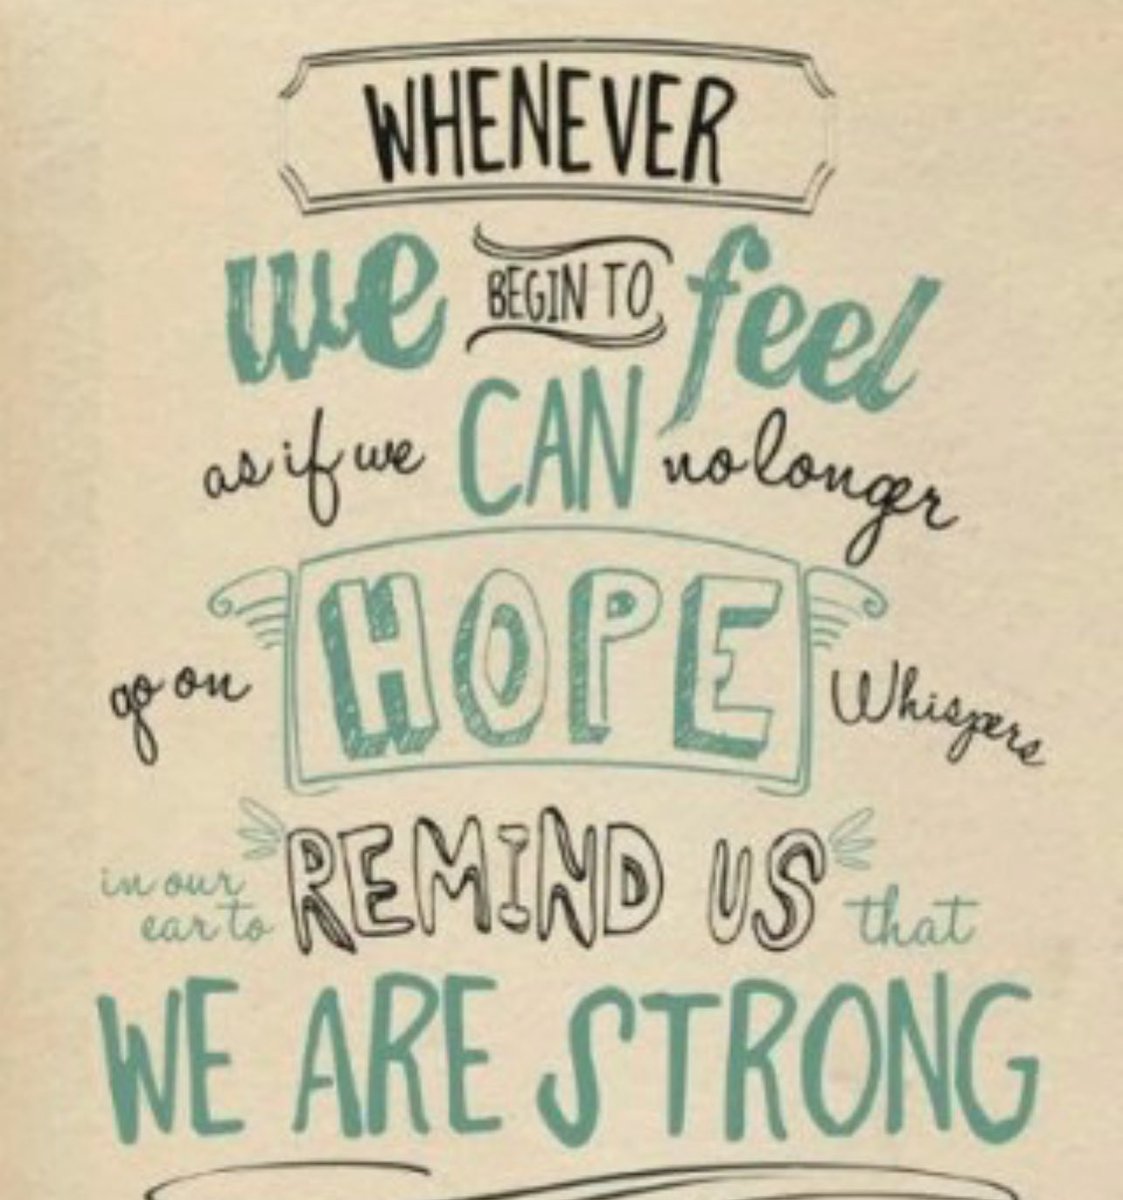 WHENEVER
we BEGIN TO feel
as if we CAN no longer
go on HOPE Whispers
in our
ear to REMIND US that
WE ARE STRONG